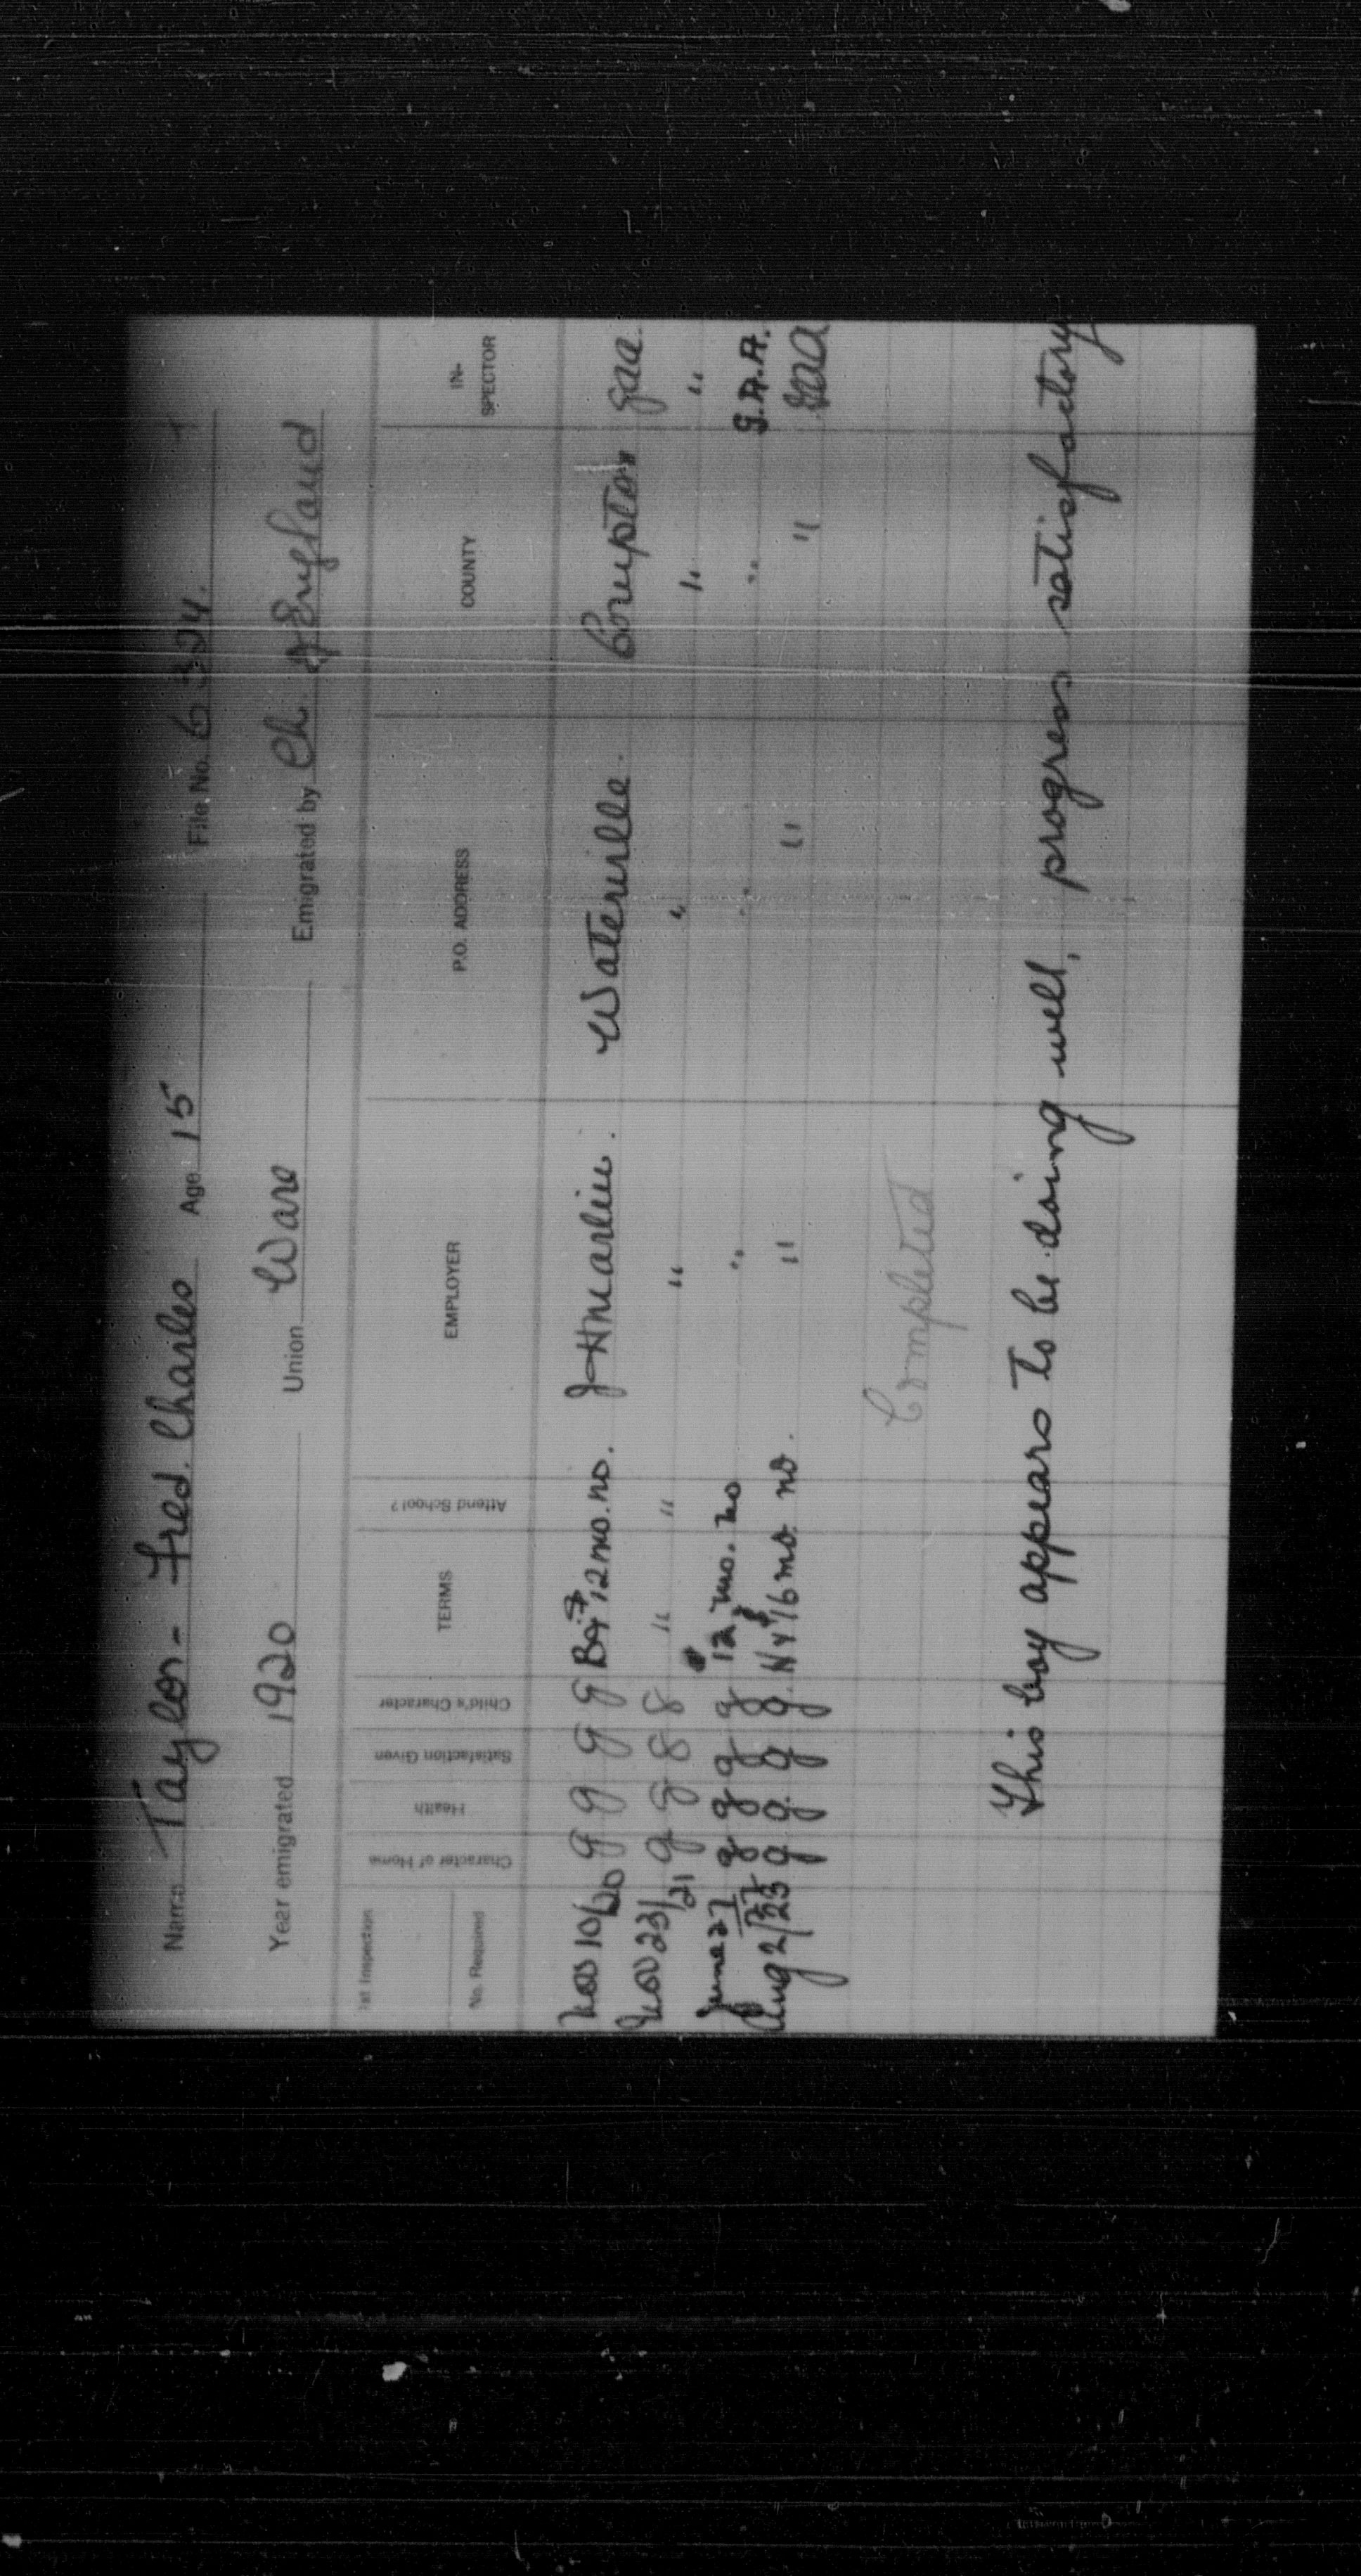 Name Taylor - Fred. Charles Age 15 File No. 6324.
Year emigrated 1920 Union Ware Emigrated by Ch. of England
1st Inspection
No. Required
Character of Home
Health
Satisfaction Given
Child's Character
TERMS
Attend School?
EMPLOYER
P.O. ADDRESS
COUNTY
IN-SPECTOR
Nov 10/20 g g g g 12 mo. no. Waterville. Compton gaa.
Nov 23/21 g g g g " " " " " "
June 27/22 g g g g 12 mo. no " " " G.A.A.
Aug 2/23 g g g g. 16 mo. no. " " " gaa
Completed
This boy appears to be doing well, progress satisfactory